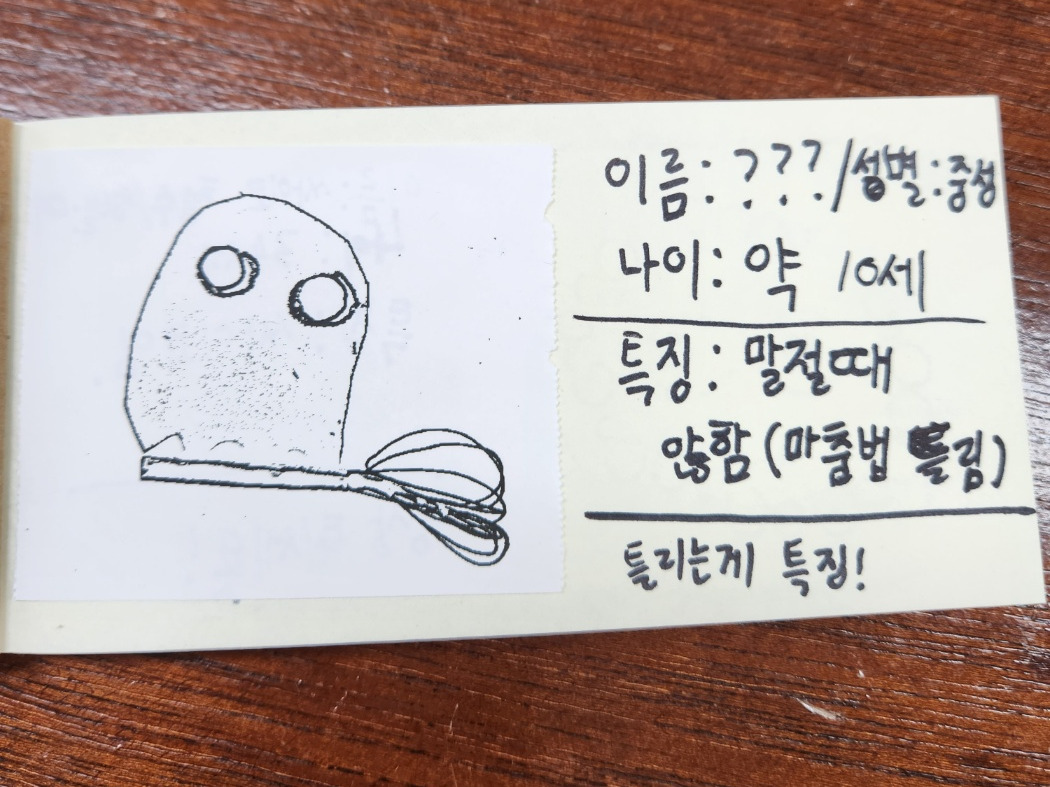 이름: ???/성별:중성
나이: 약 10세
특징: 말절때
않함(마춤법 틀림)
틀리는게 특징!